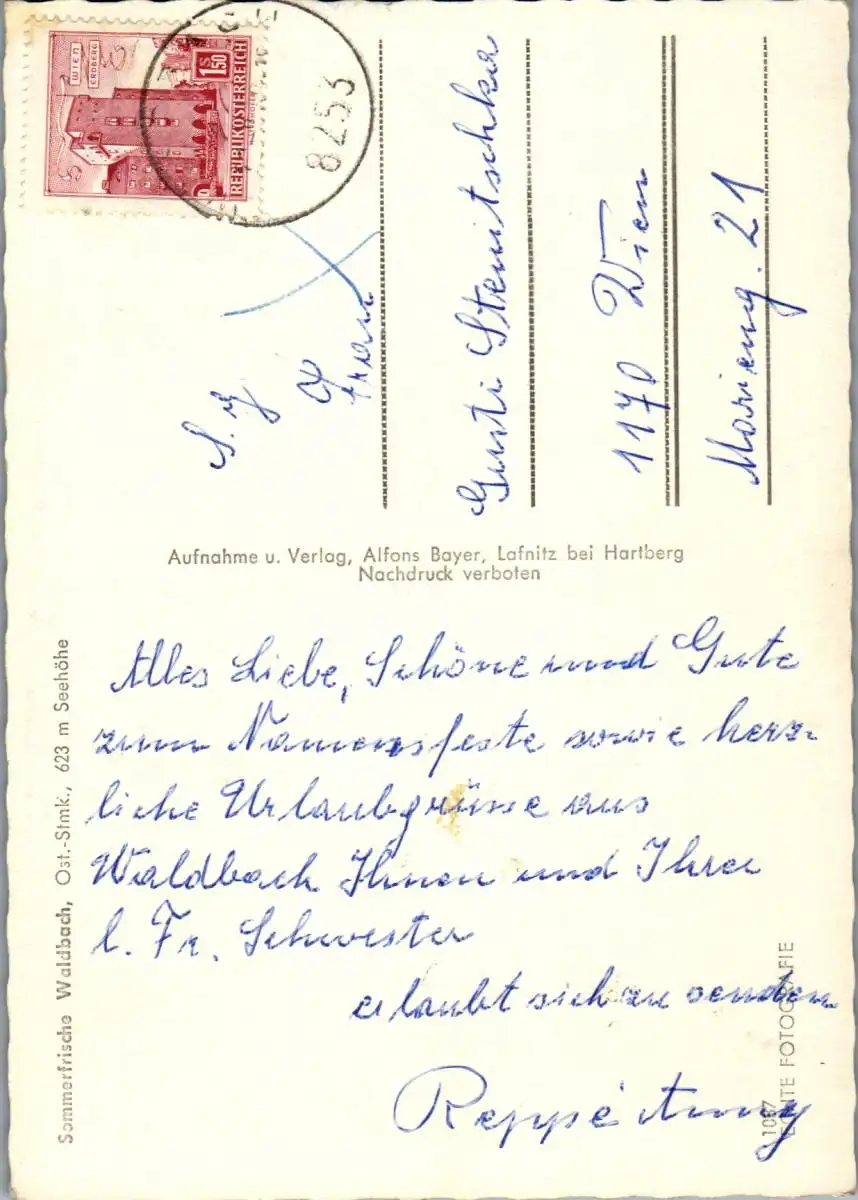 WIEN
ERDBERG
S 1.50
REPUBLIK ÖSTERREICH
8253
S. g
Frau
Gusti Stenitschka
1170 Wien
Marieng. 21
Aufnahme u. Verlag, Alfons Bayer, Lafnitz bei Hartberg
Nachdruck verboten
Sommerfrische Waldbach, Ost.-Stmk., 623 m Seehöhe
Alles Liebe, Schöne und Gute
zum Namensfeste sowie herz-
liche Urlaubgrüsse aus
Waldbach Ihnen und Ihrer
l. Fr. Schwester
erlaubt sich zu senden
1067
ECHTE FOTOGRAFIE